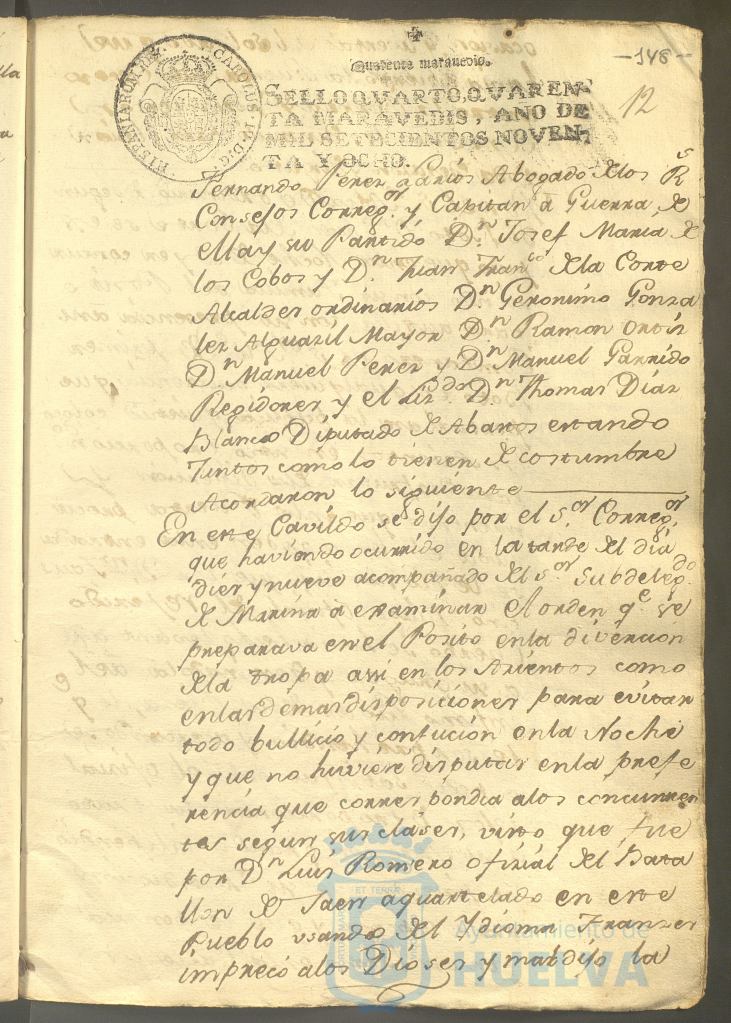 -148-
12
Quarenta maravedis.
HISPANIARUM REX CAROLUS IV D G
SELLO QVARTO, QVAREN-
TA MARAVEDIS, AÑO DE
MIL SETECIENTOS NOVEN-
TA Y OCHO.
Fernando Perez Larios Abogado de los Rs
Consejos Corregor. y Capitan a Guerra de
ella y su Partido Dn. Josef Maria de
los Cobos y Dn. Juan Franco de la Corte
Alcaldes ordinarios Dn. Geronimo Gonza
lez Alguazil Mayor Dn. Ramon Ortiz
Dn. Manuel Perez y Dn. Manuel Garrido
Regidores y el Lizdo. Dn. Thomas Diaz
Blanco Diputado de Abastos estando
Juntos como lo tienen de costumbre
Acordaron lo siguiente
En este Cavildo se dijo por el Sor. Corregor.
que haviendo ocurrido en la tarde del dia
diez y nueve acompañado del Sor. Subdelegdo
de Marina à examinar el orden qe. se
preparava en el Posito en la diversion
de la tropa assi en los Asientos como
en las demas disposiciones para evitar
todo bullicio y confucion en la Noche
y que no huviere disputas en la prefe
rencia que correspondia a los concurren
tes segun sus clases, visto que fue
por Dn. Luis Romero ofizial del Bata
llon de Jaen aquartelado en este
Pueblo usando del Ydioma Franzes
imprecó a los Dioses y maldijo la
Ayuntamiento de
HUELVA